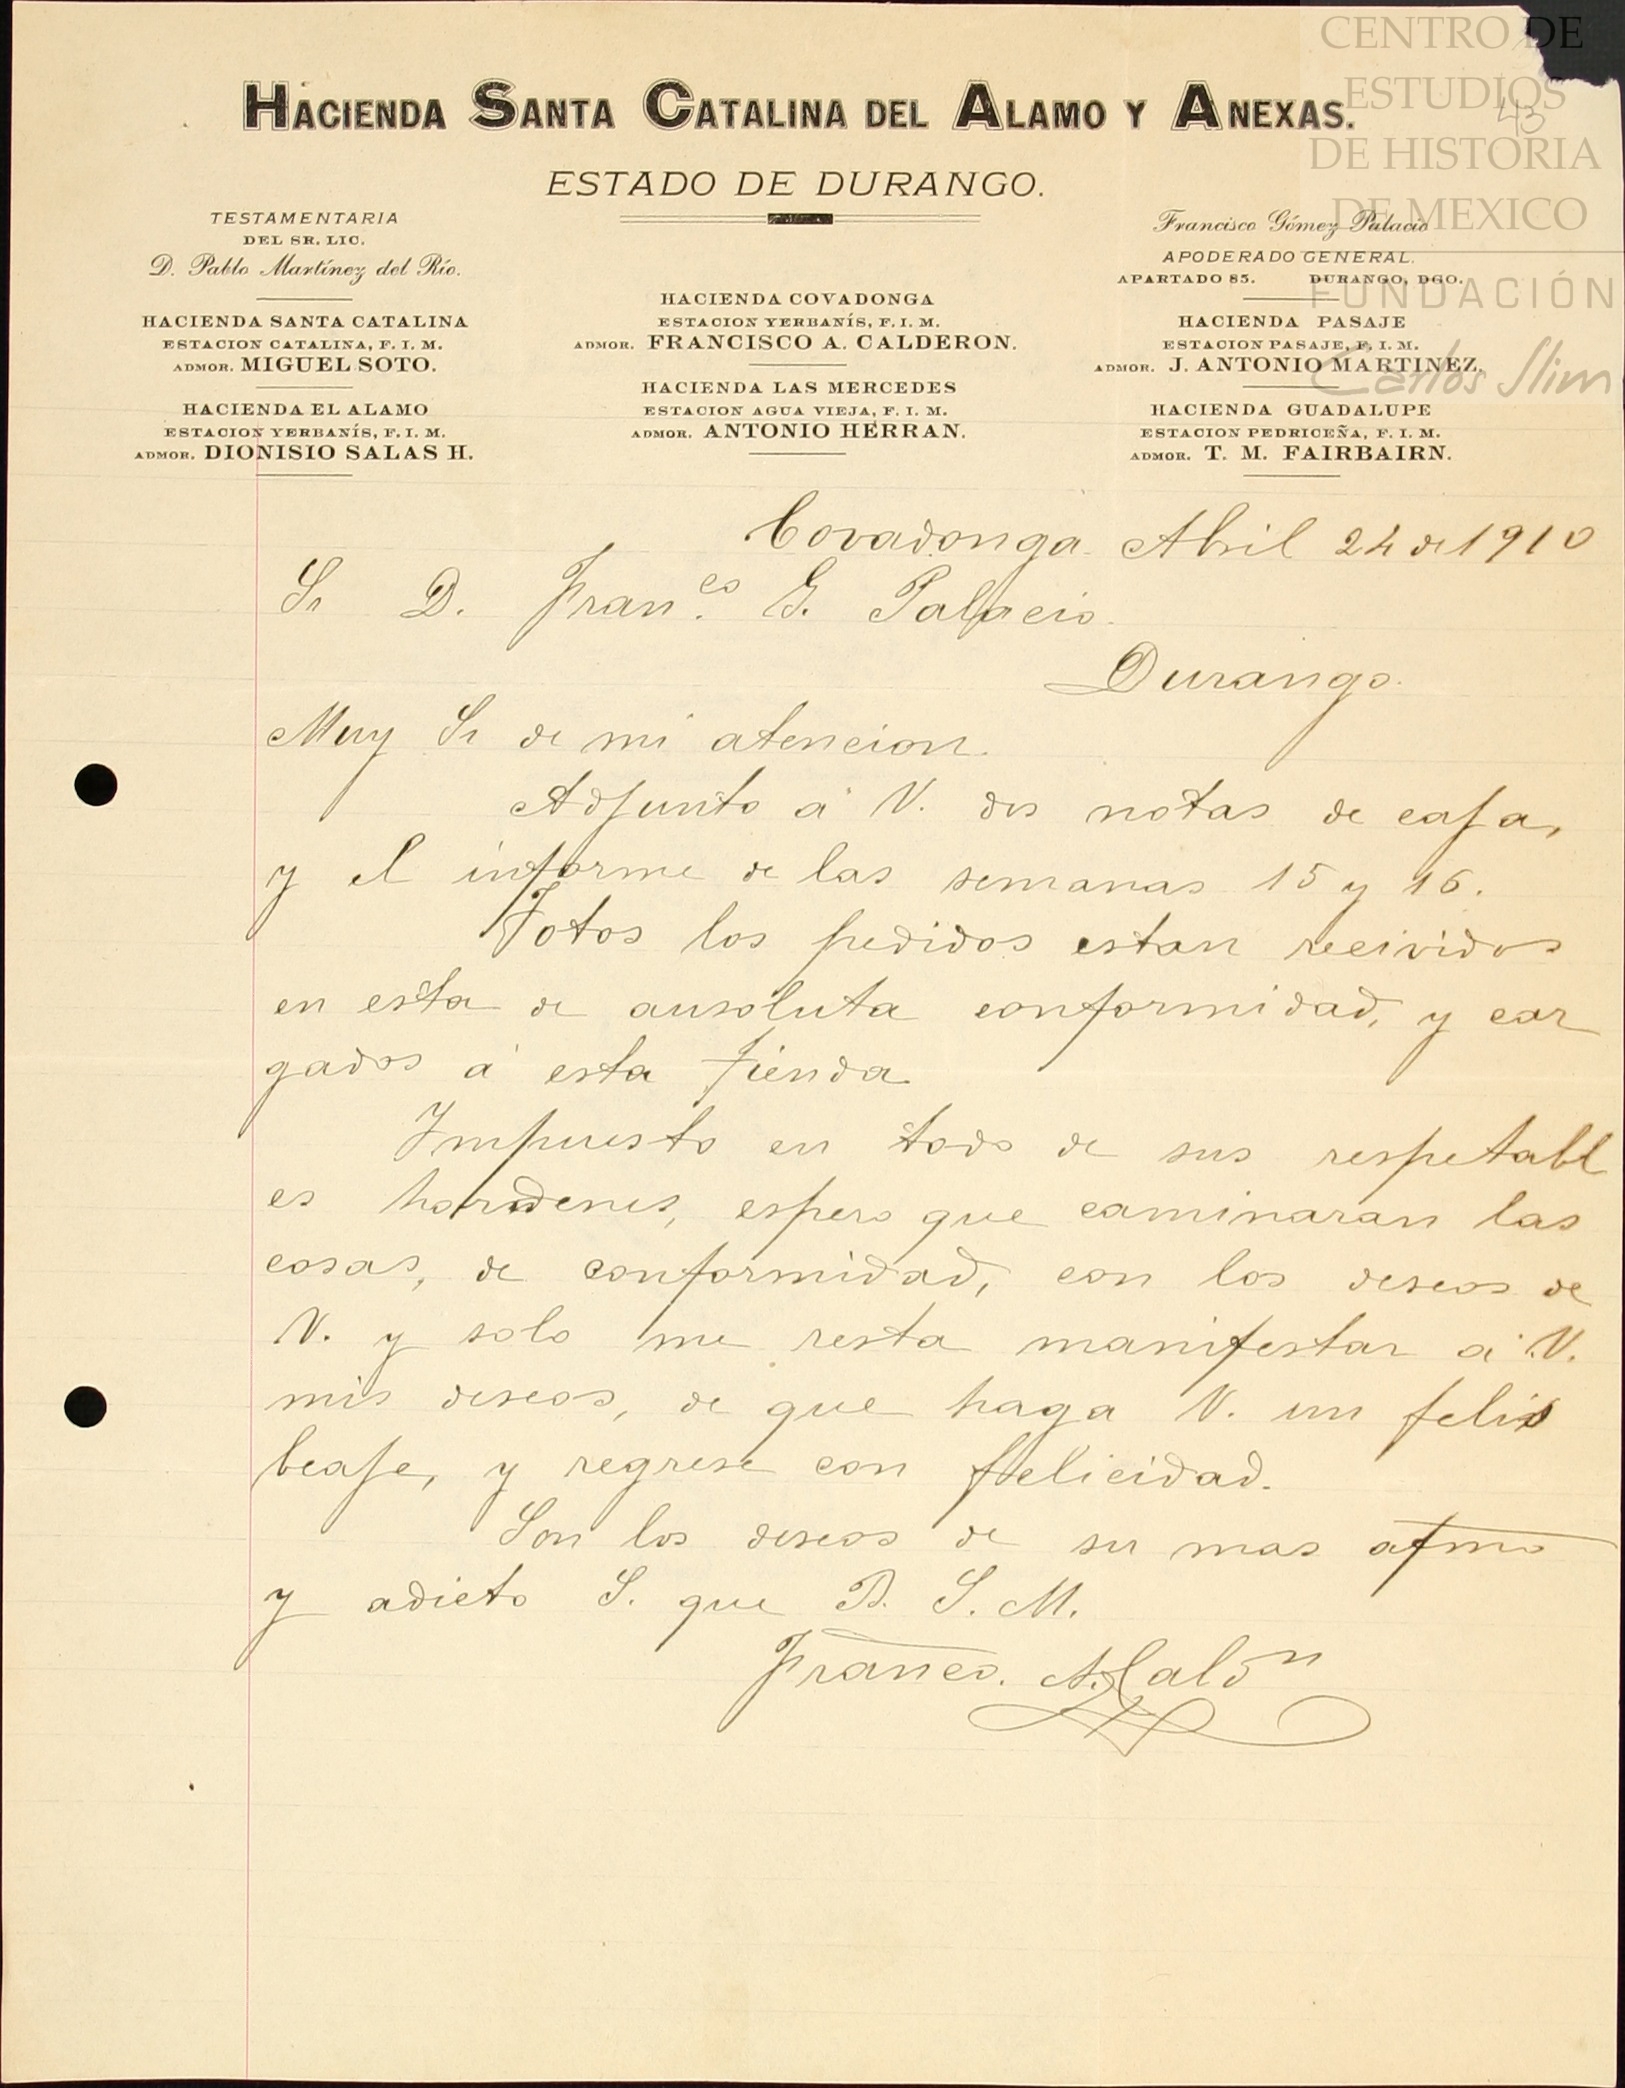 CENTRO DE
ESTUDIOS
DE HISTORIA
DE MEXICO
FUNDACIÓN
Carlos Slim
43
HACIENDA SANTA CATALINA DEL ALAMO Y ANEXAS.
ESTADO DE DURANGO.
TESTAMENTARIA
DEL SR. LIC.
D. Pablo Martínez del Río.
HACIENDA SANTA CATALINA
ESTACION CATALINA, F. I. M.
ADMOR. MIGUEL SOTO.
HACIENDA EL ALAMO
ESTACION YERBANÍS, F. I. M.
ADMOR. DIONISIO SALAS H.
HACIENDA COVADONGA
ESTACION YERBANÍS, F. I. M.
ADMOR. FRANCISCO A. CALDERON.
HACIENDA LAS MERCEDES
ESTACION AGUA VIEJA, F. I. M.
ADMOR. ANTONIO HERRAN.
Francisco Gómez Palacio
APODERADO GENERAL.
APARTADO 85. DURANGO, DGO.
HACIENDA PASAJE
ESTACION PASAJE, F. I. M.
ADMOR. J. ANTONIO MARTINEZ.
HACIENDA GUADALUPE
ESTACION PEDRICEÑA, F. I. M.
ADMOR. T. M. FAIRBAIRN.
Covadonga Abril 24 de 1910
Sr D. Fran.co G. Palacio.
Durango.
Muy Sr de mi atencion.
Adjunto á V. dos notas de caja,
y el informe de las semanas 15 y 16.
Totos los pedidos estan recividos
en esta de ausoluta conformidad, y car
gados á esta tienda
Impuesto en todo de sus respetabl
es hordenes, espero que caminaran las
cosas, de conformidad, con los deseos de
V. y solo me resta manifestar á V.
mis deseos, de que haga V. un felis
beaje, y regrese con felicidad.
Son los deseos de su mas afmo
y adicto S. que B. S. M.
Franco. A. Calon